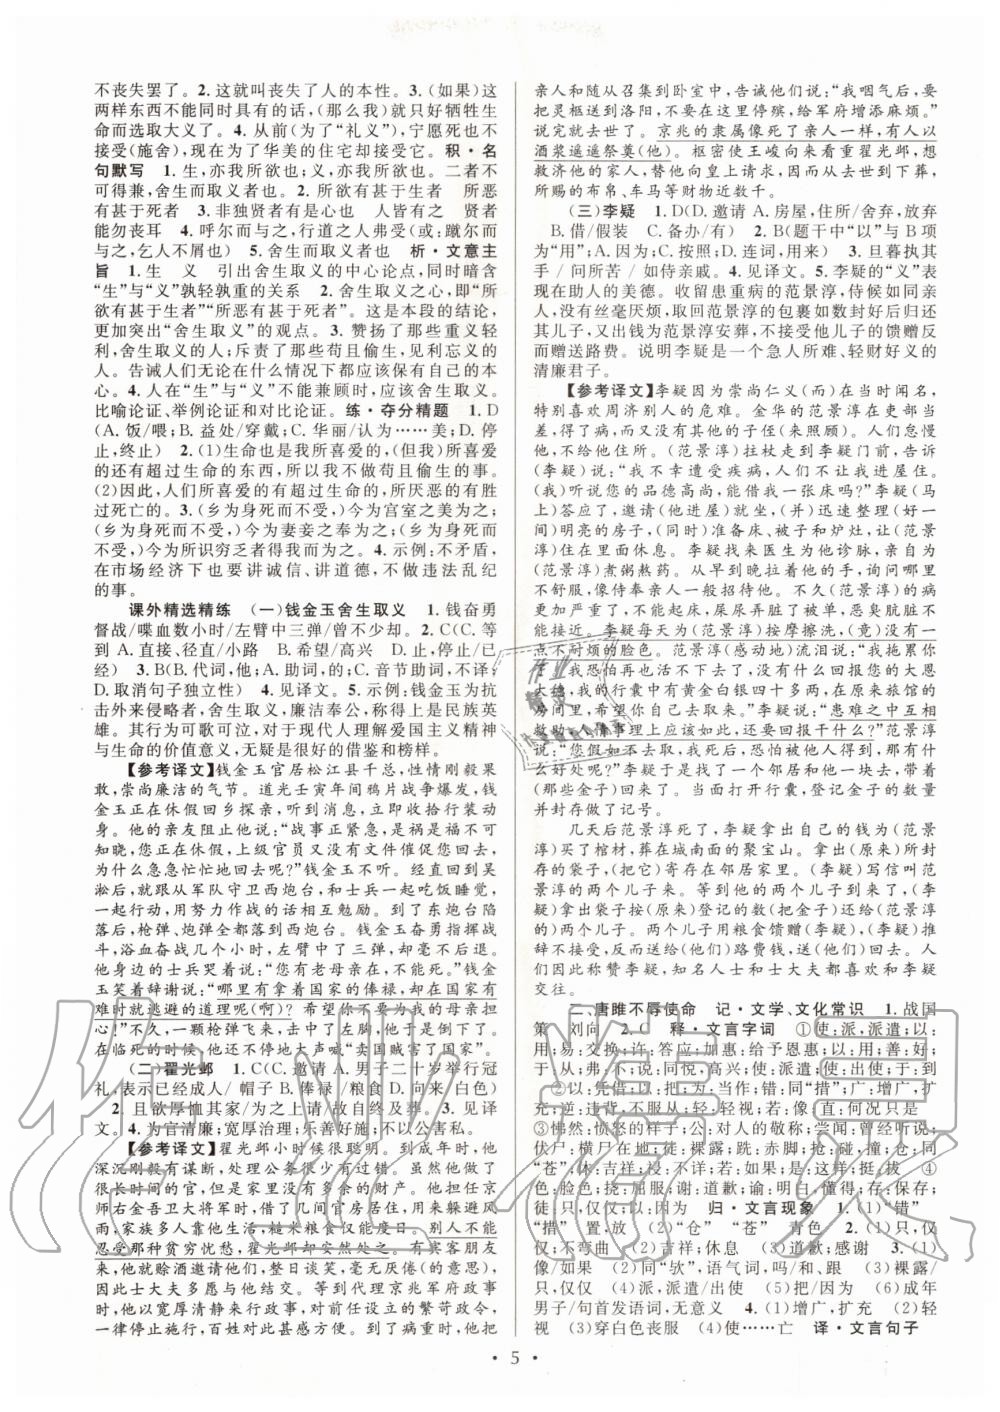 不丧失罢了。2. 这就叫丧失了人的本性。3.(如果)这
两样东西不能同时具有的话,(那么我)就只好牺牲生
命而选取大义了。4. 从前(为了“礼义”),宁愿死也不
接受(施舍),现在(却)为了华美的住宅却接受它。积·名
句默写 1. 生,亦我所欲也;义,亦我所欲也。二者不
可得兼,舍生而取义者也。2. 所欲有甚于生者 所恶
有甚于死者 3. 非独贤者有是心也 人皆有之 贤者
能勿丧耳 4. 呼尔而与之,行道之人弗受(或:蹴尔而
与之,乞人不屑也) 5. 舍生而取义者也 析·文意主
旨 1. 生 义 引出舍生取义的中心论点,同时暗含
“生”与“义”孰轻孰重的关系 2. 舍生取义之心,即“所
欲有甚于生者”“所恶有甚于死者”。这是本段的结论,
更加突出“舍生取义”的观点。3. 赞扬了那些重义轻
利,舍生取义的人;斥责了那些苟且偷生、见利忘义的人。
告诫人们无论在什么情况下都应该保有自己的本性。
4. 人在“生”与“义”不能兼顾时,应该舍生取义。
比喻论证、举例论证和对比论证。练·夺分精题 1. D
(A. 饭/喂;B. 益处/穿戴;C. 华丽/认为……美;D. 停
止,终止) 2.(1)生命也是我所喜爱的,(但我)所喜爱
的还有超过生命的东西,所以我不做苟且偷生的事。
(2)因此,人们所喜爱的有超过生命的,所厌恶的有胜
过死亡的。3.(乡为身死而不受,)今为宫室之美为之;
(乡为身死而不受,)今为妻妾之奉为之;(乡为身死而不
受,)今为所识穷乏者得我而为之。4. 示例:不矛盾,
在市场经济下也要讲诚信、讲道德,不做违法乱纪
的事。
课外精选精练 (一)钱金玉舍生取义 1. 钱奋勇
督战/喋血数小时/左臂中三弹/曾不少却。2. C(C. 等
到 A. 直接、径直/小路 B. 希望/高兴 D. 止,停止/已
经) 3. B(B. 代词,他;A. 助词,的;C. 音节助词,不译;
D. 取消句子独立性) 4. 见译文。5. 示例:钱金玉为抗
击外来侵略者,舍生取义,廉洁奉公,称得上是民族英
雄。其行为可歌可泣,对于现代人理解爱国主义精神
与生命的价值意义,无疑是很好的借鉴和榜样。
【参考译文】钱金玉官居松江县千总,性情刚毅果
敢,崇尚廉洁的气节。道光壬寅年间鸦片战争爆发,钱
金玉正在休假回乡探亲,听到消息,立即收拾行装动
身。他的亲友阻止他说:“战事正紧急,是祸是福不可
知晓,您正在休假,上级官员又没有文件催促您回去,
为什么急急忙忙地回去呢?”钱金玉不听。已到吴
淞后,就跟从军队守卫西炮台,和士兵一起吃饭睡觉,
一起行动,用努力作战的话相互勉励。到了东炮台陷
落后,枪弹、炮弹全都落到西炮台。钱金玉奋勇指挥战
斗,浴血奋战几个小时,左臂中了三弹,却毫不后退。
他身边的士兵哭着说:“您有老母亲在,不能死。”钱金
玉笑着辞谢说:“哪里有拿着国家的俸禄,却在国家有
难时就逃避的道理呢(啊)?希望你不要为我的母亲担
心!”不久,一颗枪弹飞来,击中了左胸,他于是倒下了。
在临死的时候,他还不停地大声喊“卖国贼害了国家”。
(二)翟光邺 1. C(C. 邀请 A. 男子二十岁举行冠
礼,表示已经成人/帽子 B. 俸禄/粮食 D. 向来/白色)
2. 且欲厚恤其家/为之上请/故自终及葬。3. 见译
文。4. 为官清廉;宽厚治理;乐善好施,不以公害私。
【参考译文】翟光邺小时候很聪明。到成年时,他
深沉刚毅有谋断,处理公务很少有过错。他虽然做了
很长时间的官,但家里没有多余的财产。他担任京
师右金吾卫大将军时,借了几间官房居住,用来躲避风
雨,家族多人靠他生活,糙米粮食仅能度日。别人不能
忍受那种贫穷忧愁,翟光邺却安然处之。有宾客朋友
来,他就赊酒邀请他们,整日谈笑,毫无厌倦(的意思),
士大夫多愿与他结交。等到代理京兆府政事
时,他以宽厚清静来行政事,对前任设立的繁苛政令,
一律停止施行,百姓对此甚感方便。到了病重时,他把
亲人和随从召集到卧室中,告诫他们说:“我咽气后,要
把灵柩送到洛阳,不要在这里停殡,给军府增添麻烦。”
说完就去世了。京兆的隶属像死了亲人一样,有人以
酒浆遥遥祭奠(他)。枢密使王峻向来看重翟光邺,想
救济他的家人,替他向皇上请求,从他去世直到下葬,
所赐的布帛、车马等财物近数千。
(三)李疑 1. D(D. 邀请 A. 房屋,住所/舍弃,放弃
B. 借/假装 C. 备办/有) 2. B(题干中“以”与B项
为“用”;A. 因为;C. 按照;D. 连词,用来) 3. 旦暮执其
手/问所苦/如侍亲戚。4. 见译文。5. 李疑的“义”表
现在助人的美德。收留患重病的范景淳,侍候如同亲
人,没有丝毫厌烦,取回范景淳的包裹如数封好后归还
其儿子,又出钱为范景淳安葬,不接受他儿子的馈赠反
而赠送路费。说明李疑是一个急人所难、轻财好义的
清廉君子。
【参考译文】李疑因为崇尚仁义(而)在当时闻名,
特别喜欢周济别人的危难。金华的范景淳在吏部当
差,得了病,而又没有其他的子侄(来照顾)。人们怠慢
他,不给他住所。(范景淳)拄杖走到李疑门前,告诉
(李疑)说:“我不幸遭受疾病,人们不让我进屋住。
(我)听说您的品德高尚,能借我一张床吗?”李疑(马
上)答应了,邀请(他)进屋就坐,(并)迅速整理(好)一
间明亮的房子,(同时)准备床、被子和炉灶,让(范景
淳)在里面休息。李疑找来医生为他诊脉,亲自为(范
景淳)煮粥熬药。早晚拉着他的手,询问哪里
不舒服,像侍奉亲人一般。后来(范景淳)病情更加严重
不能起床,屎尿弄脏了被单,恶臭肮脏不
能接近,李疑每天为(范景淳)按摩擦洗,(竟)没有一
点不耐烦的脸色。范景淳(感动地)流泪说:“我拖累你
了。我恐怕再也活不下去了,没有什么回报您的大恩
大德,我的行囊中有黄金白银四十多两,在原来旅馆的
房间里,希望您自己去取。”李疑说:“患难之中互相
救助,事情理上应该如此,要回报干什么?”范景淳
说:“您假如不去取,我死后,恐怕被他人拿走,有什么
好处呢?”李疑于是叫了一个邻居和他一块去,带着
(那些金子)回来了。打开行囊,登记金子的数量
并封存做了记号。
几天后范景淳死了,李疑拿出自己的钱为(范景
淳)买了棺材,葬在城南面的聚宝山。拿出原来所封
存的袋子,(把它)寄存在里面,写信叫范
景淳的两个儿子来。等到他的两个儿子到了,(李
疑)拿出袋子按(原来)登记的数(把金子)还给(范景淳
的两个)儿子。两个儿子用粮食馈赠(李疑),(李疑)推
辞不接受,反而送给(他们)路费钱,送(他们)回去。人
们因此称赞李疑,知名人士和士大夫都喜欢和李疑
交往。
二、唐雎不辱使命 记·文学、文化常识 1. 战国
策 刘向 2. C 释·文言字词 ①使:派,派遣;以:
用;易:交换;许:答应;加:给予恩惠;以:用;善:好;
于:到 ②以:凭借……
错:同“措”;广:增广,扩
充;逆:违背,不服从;轻:轻视;若:像;直:何况只是
③怫然:愤怒的样子;公:对人的敬称;尝闻:曾经听说;
伏尸:横尸在地;徒:裸露;跣:赤脚;抢:撞;仓:同
“苍”;休:吉祥;祲:不祥;若:如果;是:这样;挺:拔 ④
色:脸色;挠:屈服;谢:道歉;谕:明白,懂得;存:保存;
徒:只,仅仅;以:因为 归·文言现象 1.(1)“错”
“措” 置,放 (2)“仓” “苍” 青色 2.(1)只,仅
仅;不弯曲 (2)吉祥;休息 (3)道歉;感谢 3.(1)
像/如果 (2)同“欤”,语气词,吗/和、跟 (3)裸露/
只,仅仅 (4)派,派遣/出使 (5)把/因为 (6)成年
男子/句首发语词,无意义 4.(1)增广,扩充 (2)轻
视 (3)穿白色丧服 (4)使……亡 译·文言句子
· 5 ·
作业精灵